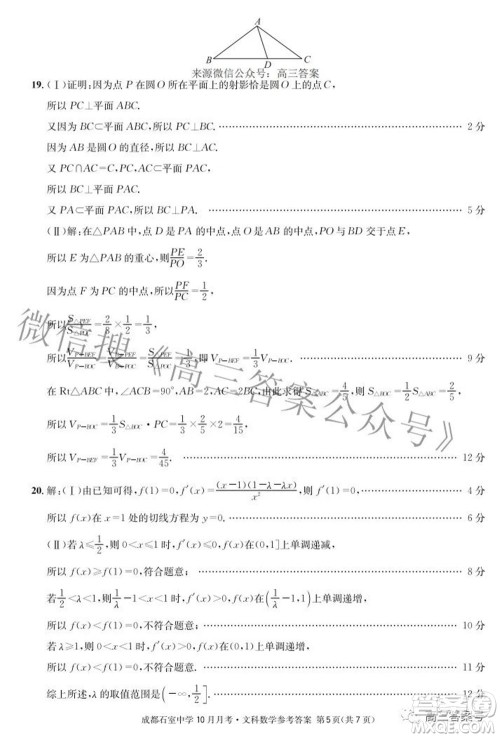 A
B D C
来源微信公众号：高三答案
19.(Ⅰ)证明:因为点 P 在圆 O 所在平面上的射影恰是圆 O 上的点 C,
所以 PC⊥平面 ABC.
又因为 BC⊂平面 ABC,所以 PC⊥BC. 2 分
因为 AB 是圆 O 的直径,所以 BC⊥AC.
又 PC∩AC=C,
所以 BC⊥平面 PAC.
又 PA⊂平面 PAC,所以 BC⊥PA. 5 分
(Ⅱ)解:在△PAB 中,点 D 是 PA 的中点,点 O 是 AB 的中点,PO 与 BD 交于点 E,
所以 E 为△PAB 的重心,则PE/PO=2/3.
因为点 F 为 PC 的中点,所以PF/PC=1/2,
所以 1/2=1/3,
所以 1/3,即 V_{P-BEF}=1/3 V_{P-BOC}. 9 分
在 Rt△ABC 中,∠ACB=90°,AB=2,
所以 V_{P-BOC}=1/3 S_{△BOC}·PC=1/3×2/5×2=4/15,
所以 V_{P-BEF}=1/3 V_{P-BOC}=4/45. 12 分
20.解:(Ⅰ)由已知可得,f(1)=0,f′(x)=(x-1)(1-λ-λx)/x², 4 分
所以 f(x)在 x=1 处的切线方程为 y=0. 6 分
(Ⅱ)若 λ≤1/2,则 0<x≤1 时,f′(x)≤0,f(x)在(0,1]上单调递减,
所以 f(x)≥f(1)=0,符合题意; 8 分
若1/2<λ<1,则1/λ-1<x<1 时,f′(x)>0,f(x)在(1/λ-1,1)上单调递增,
所以 f(x)<f(1)=0,不符合题意; 10 分
若 λ≥1,则 0<x<1 时,f′(x)>0,f(x)在(0,1]上单调递增,
所以 f(x)<f(1)=0,不符合题意. 11 分
综上所述,λ 的取值范围是(-∞,1/2]. 12 分
成都石室中学 10 月月考·文科数学参考答案 第 5 页(共 7 页)
微信搜《高三答案公众号》
高三答案号